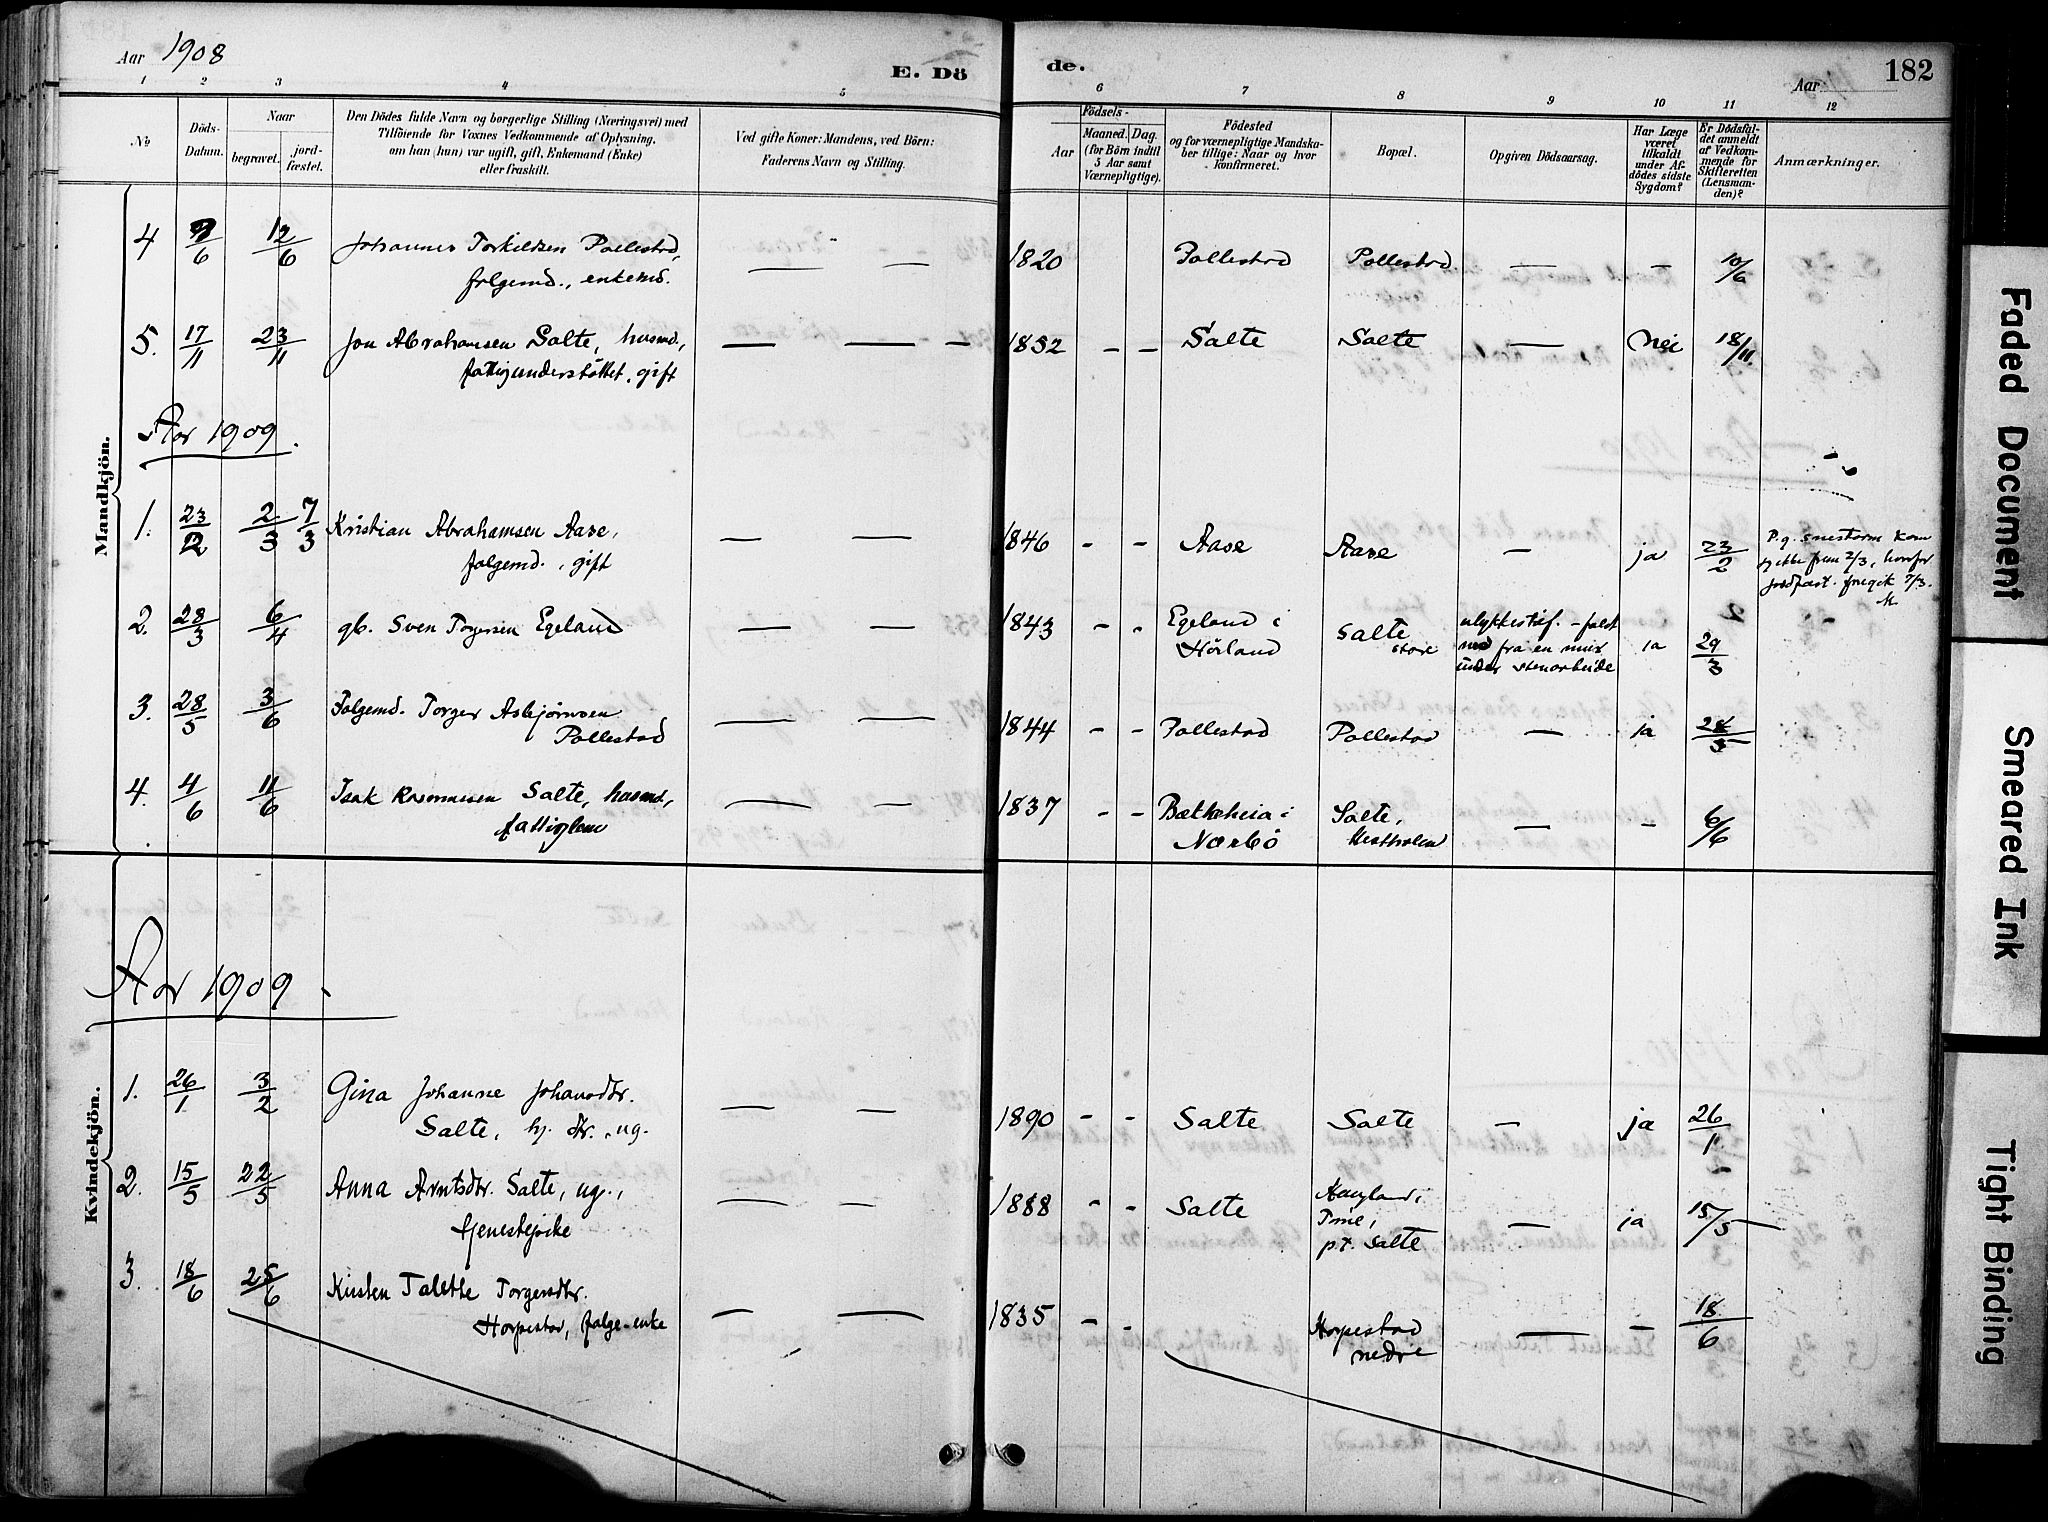 Aar 1908
E. Dö
de.
Aar
182
1 2 3 4 5 6 7 8 9 10 11 12
No
Döds-
Datum.
Naar
begravet.
jord-
fæstet.
Den Dödes fulde Navn og borgerlige Stilling (Næringsvei) med
Tilföiende for Voxnes Vedkommende af Oplysning,
om han (hun) var ugift, gift, Enkemand (Enke)
eller fraskilt.
Ved gifte Koner: Mandens, ved Börn:
Faderens Navn og Stilling.
Födsels-
Aar
Maaned. Dag.
(for Börn indtil
5 Aar samt
Værnepligtige).
Födested
og for værnepligtige Mandska-
ber tillige: Naar og hvor
konfirmeret.
Bopæl.
Opgiven Dödsaarsag.
Har Læge
været
tilkaldt
under Af-
dödes sidste
Sygdom?
Er Dödsfal-
det anmeldt
af Vedkom-
mende for
Skifteretten
(Lensman-
den)?
Anmærkninger.
Mandkjön.
4 9/6 12/6 Johannes Torkildsen Pollestad, — — 1820 Pollestad Pollestad — — 10/6
folgemd., enkemd.
5. 17/11 23/11 Jon Abrahamsen Salte, husmd., — — — 1852 - - Salte Salte — Nei 18/11
fattigunderstöttet, gift
Aar 1909.
1. 23/2 2/3 7/3 Kristian Abrahamsen Aase, — — 1846 - - Aase Aase — ja 23/2
folgemd., gift
P.g. snestorm kom
ikke frem 2/3, hvorfor
jordfæst. foregik 7/3.
2. 28/3 6/4 gb. Sven Torgersen Egeland — — 1843 - - Egeland i
Hörland
Salte
store
ulykkestilf. - falt
ned fra en mur
under stenarbeide
ja 29/3
3. 28/5 3/6 Folgemd. Torger Asbjörnsen
Pollestad — — 1844 - - Pollestad Pollestad — ja 28/5
4. 4/6 11/6 Isak Rasmussen Salte, husmd.,
fattiglem — — 1837 - - Bækkeheia i
Nærbö
Salte,
— — 6/6
Kvindekjön.
Aar 1909.
1. 26/1 3/2 Gina Johanne Johansdtr.
Salte, hj. dtr., ug. — — 1890 - - Salte Salte — ja 26/1
2. 15/5 22/5 Anna Arntsdtr. Salte, ug.,
tjenestepike — — 1888 - - Salte
Haugland,
Time,
p.t. Salte
— ja 15/5
3. 18/6 25/6 Kirsten Talette Torgersdtr.
Horpestad, folge-enke — — 1835 - - Horpestad
nedre
— — 18/6
Faded Document
Smeared Ink
Tight Binding